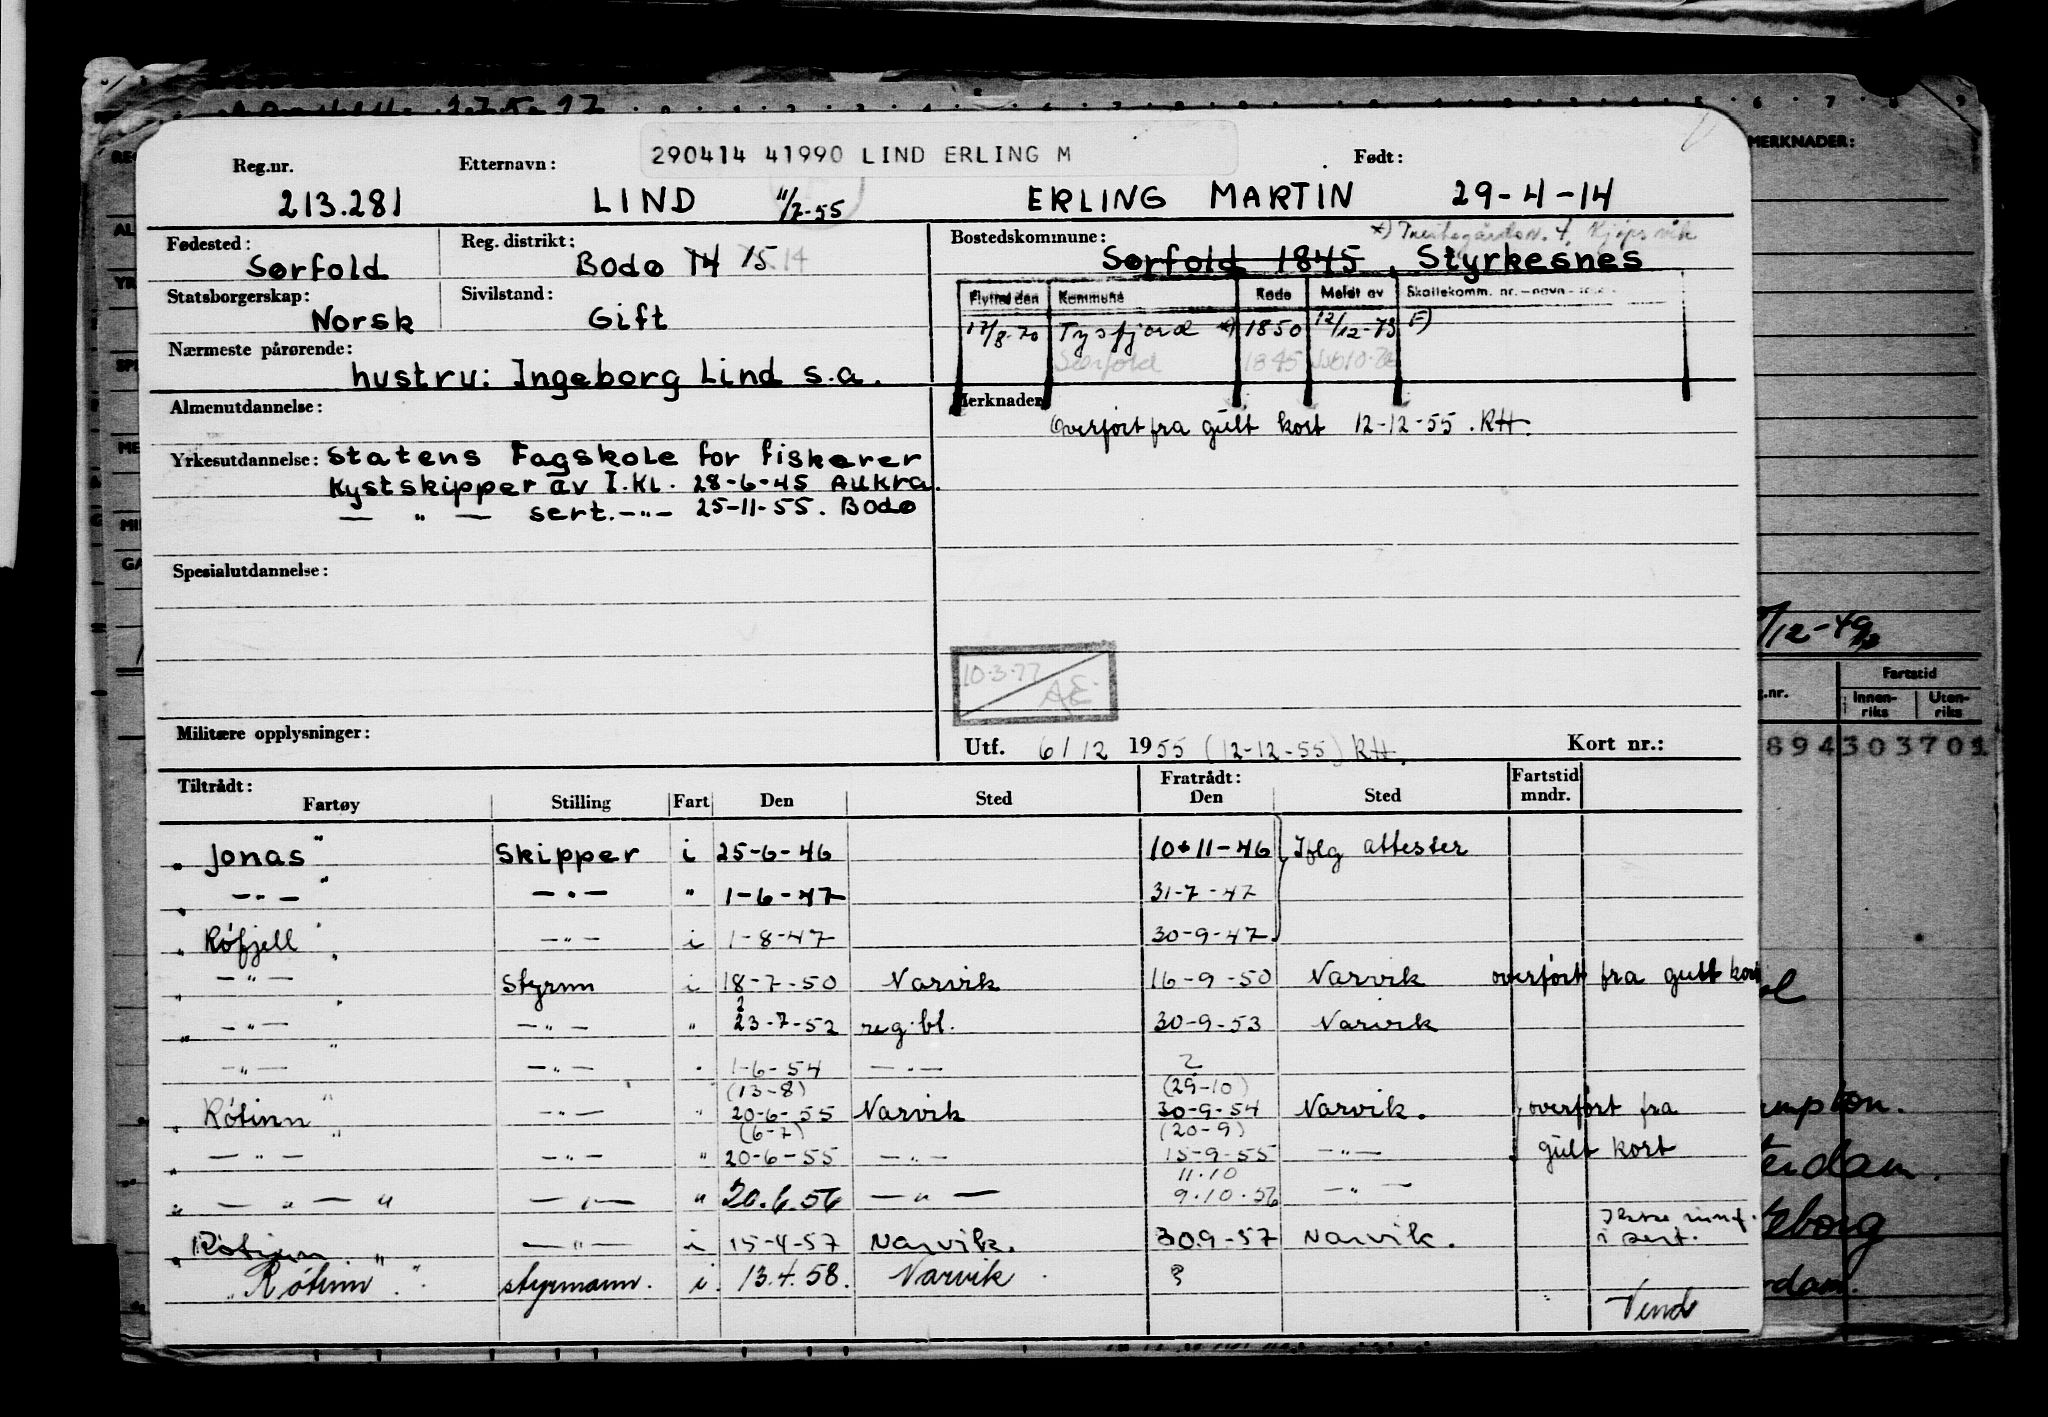 290414 41990 LIND ERLING M
Reg.nr. Etternavn: Født:
213.281 LIND 11/7-55 ERLING MARTIN 29-4-14
Fødested: Reg. distrikt: Bostedskommune:
Sørfold Bodø 14 15 14 Sørfold 1845, Styrkesnes
Statsborgerskap: Sivilstand:
Norsk Gift
Flyttet den Kommune Kode Meldt av Skattekomm. nr. – navn –
17/8-70 Tysfjord *) 1850 12/12-73 F)
Sørfold 1845
Nærmeste pårørende:
hustru: Ingeborg Lind s.a.
Almenutdannelse: Merknader
Overført fra gult kort 12-12-55. RH.
Yrkesutdannelse: Statens Fagskole for fiskerer
Kystskipper av I.Kl. 28-6-45 Aukra.
— " — sert. — " — 25-11-55. Bodø
Spesialutdannelse:
10-3-77 AE
Militære opplysninger: Utf. 6/12 1955 (12-12-55) RH. Kort nr.:
Tiltrådt: Fratrådt: Fartstid
Fartøy Stilling Fart Den Sted Den Sted mndr.
" Jonas " Skipper i 25-6-46 10-11-46 Iflg attester
" — " — " — " — " 1-6-47 31-7-47
" Røfjell " — " — i 1-8-47 30-9-47
" — " — " Styrm i 18-7-50 Narvik 16-9-50 Narvik overført fra gult kort
?
" — " — " — " — " 23-7-52 reg.bl. 30-9-53 Narvik
" — " — " — " — " 1-6-54 — " — ?
(13-8) (29-10)
" Røtinn " — " — " 20-6-55 Narvik 30-9-54 Narvik. overført fra
(6-7) (20-9)
" — " — " — " — " 20-6-55 — " — 15-9-55 — " — gult kort
11.10
" — " — " — " — " 20.6.56 — " — 9.10.56 — " —
" Røtinn " — " — i 15-4-57 Narvik. 30.9-57 Narvik. i sert.
" Røtinn " styrmann. i. 13.4.58. Narvik ?
Vend
MERKNADER:
/12-49
Fartstid
Innen-riks Uten-riks
894 303 70